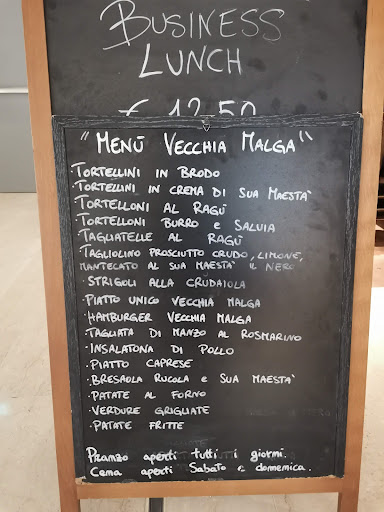 BUSINESS
LUNCH
€ 12,50
"MENÙ VECCHIA MALGA"
·TORTELLINI IN BRODO
·TORTELLINI IN CREMA DI SUA MAESTA'
·TORTELLONI AL RAGÙ
·TORTELLONI BURRO e SALVIA
·TAGLIATELLE AL RAGÙ
·TAGLIOLINO PROSCIUTTO CRUDO, LIMONE,
MANTECATO AL SUA MAESTA' IL NERO
·STRIGOLI ALLA CRUDAIOLA
·PIATTO UNICO VECCHIA MALGA
·HAMBURGER VECCHIA MALGA
·TAGLIATA DI MANZO AL ROSMARINO
·INSALATONA DI POLLO
·PIATTO CAPRESE
·BRESAOLA RUCOLA e SUA MAESTA'
·PATATE AL FORNO
·VERDURE GRIGLIATE
·PATATE FRITTE
Pranzo aperti tutti i giorni.
Cena aperti Sabato e domenica.